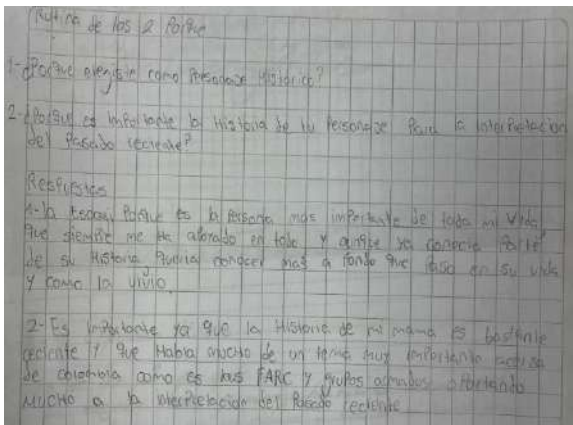 Rutina de los 2 Porque
1-¿Porque elegiste como Personaje Historico?
2-¿Porque es importante la Historia de tu Personaje Para la interpretacion
del Pasado reciente?
Respuestas
1-la Porque es la Persona mas importante de toda mi vida,
que siempre me Ha apoyado en todo y aunque ya conocia Parte
de su Historia Queria conocer mas a fondo que Paso en su vida
y como lo vivio.
2-Es importante ya que la Historia de mi mama es bastante
reciente y que Habla mucho de un tema muy importante
de colombia como es las FARC y grupos armados aportando
MUCHO a la interpretacion del Pasado reciente